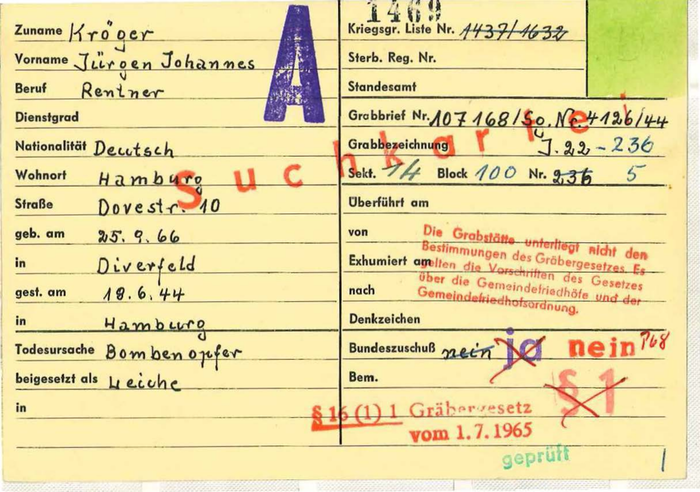 A
1469
Zuname Kröger
Vorname Jürgen Johannes
Beruf Rentner
Dienstgrad
Nationalität Deutsch
Wohnort Hamburg
Straße Dovestr. 10
geb. am 25.9.66
in Diverfeld
gest. am 18.6.44
in Hamburg
Todesursache Bombenopfer
beigesetzt als Leiche
in
Suchkartei
Kriegsgr. Liste Nr. 1437/1632
Sterb. Reg. Nr.
Standesamt
Grabbrief Nr. 107168/So. Nr. 4126/44
Grabbezeichnung J. 22 - 236
Sekt. 14 Block 100 Nr. 236 5
Überführt am
von
Exhumiert am
nach
Die Grabstätte unterliegt nicht den
Bestimmungen des Gräbergesetzes. Es
gelten die Vorschriften des Gesetzes
über die Gemeindefriedhöfe und der
Gemeindefriedhofsordnung.
Denkzeichen
Bundeszuschuß nein ja nein
Bem. § 1
§ 16 (1) 1 Gräbergesetz
vom 1.7.1965
geprüft
1